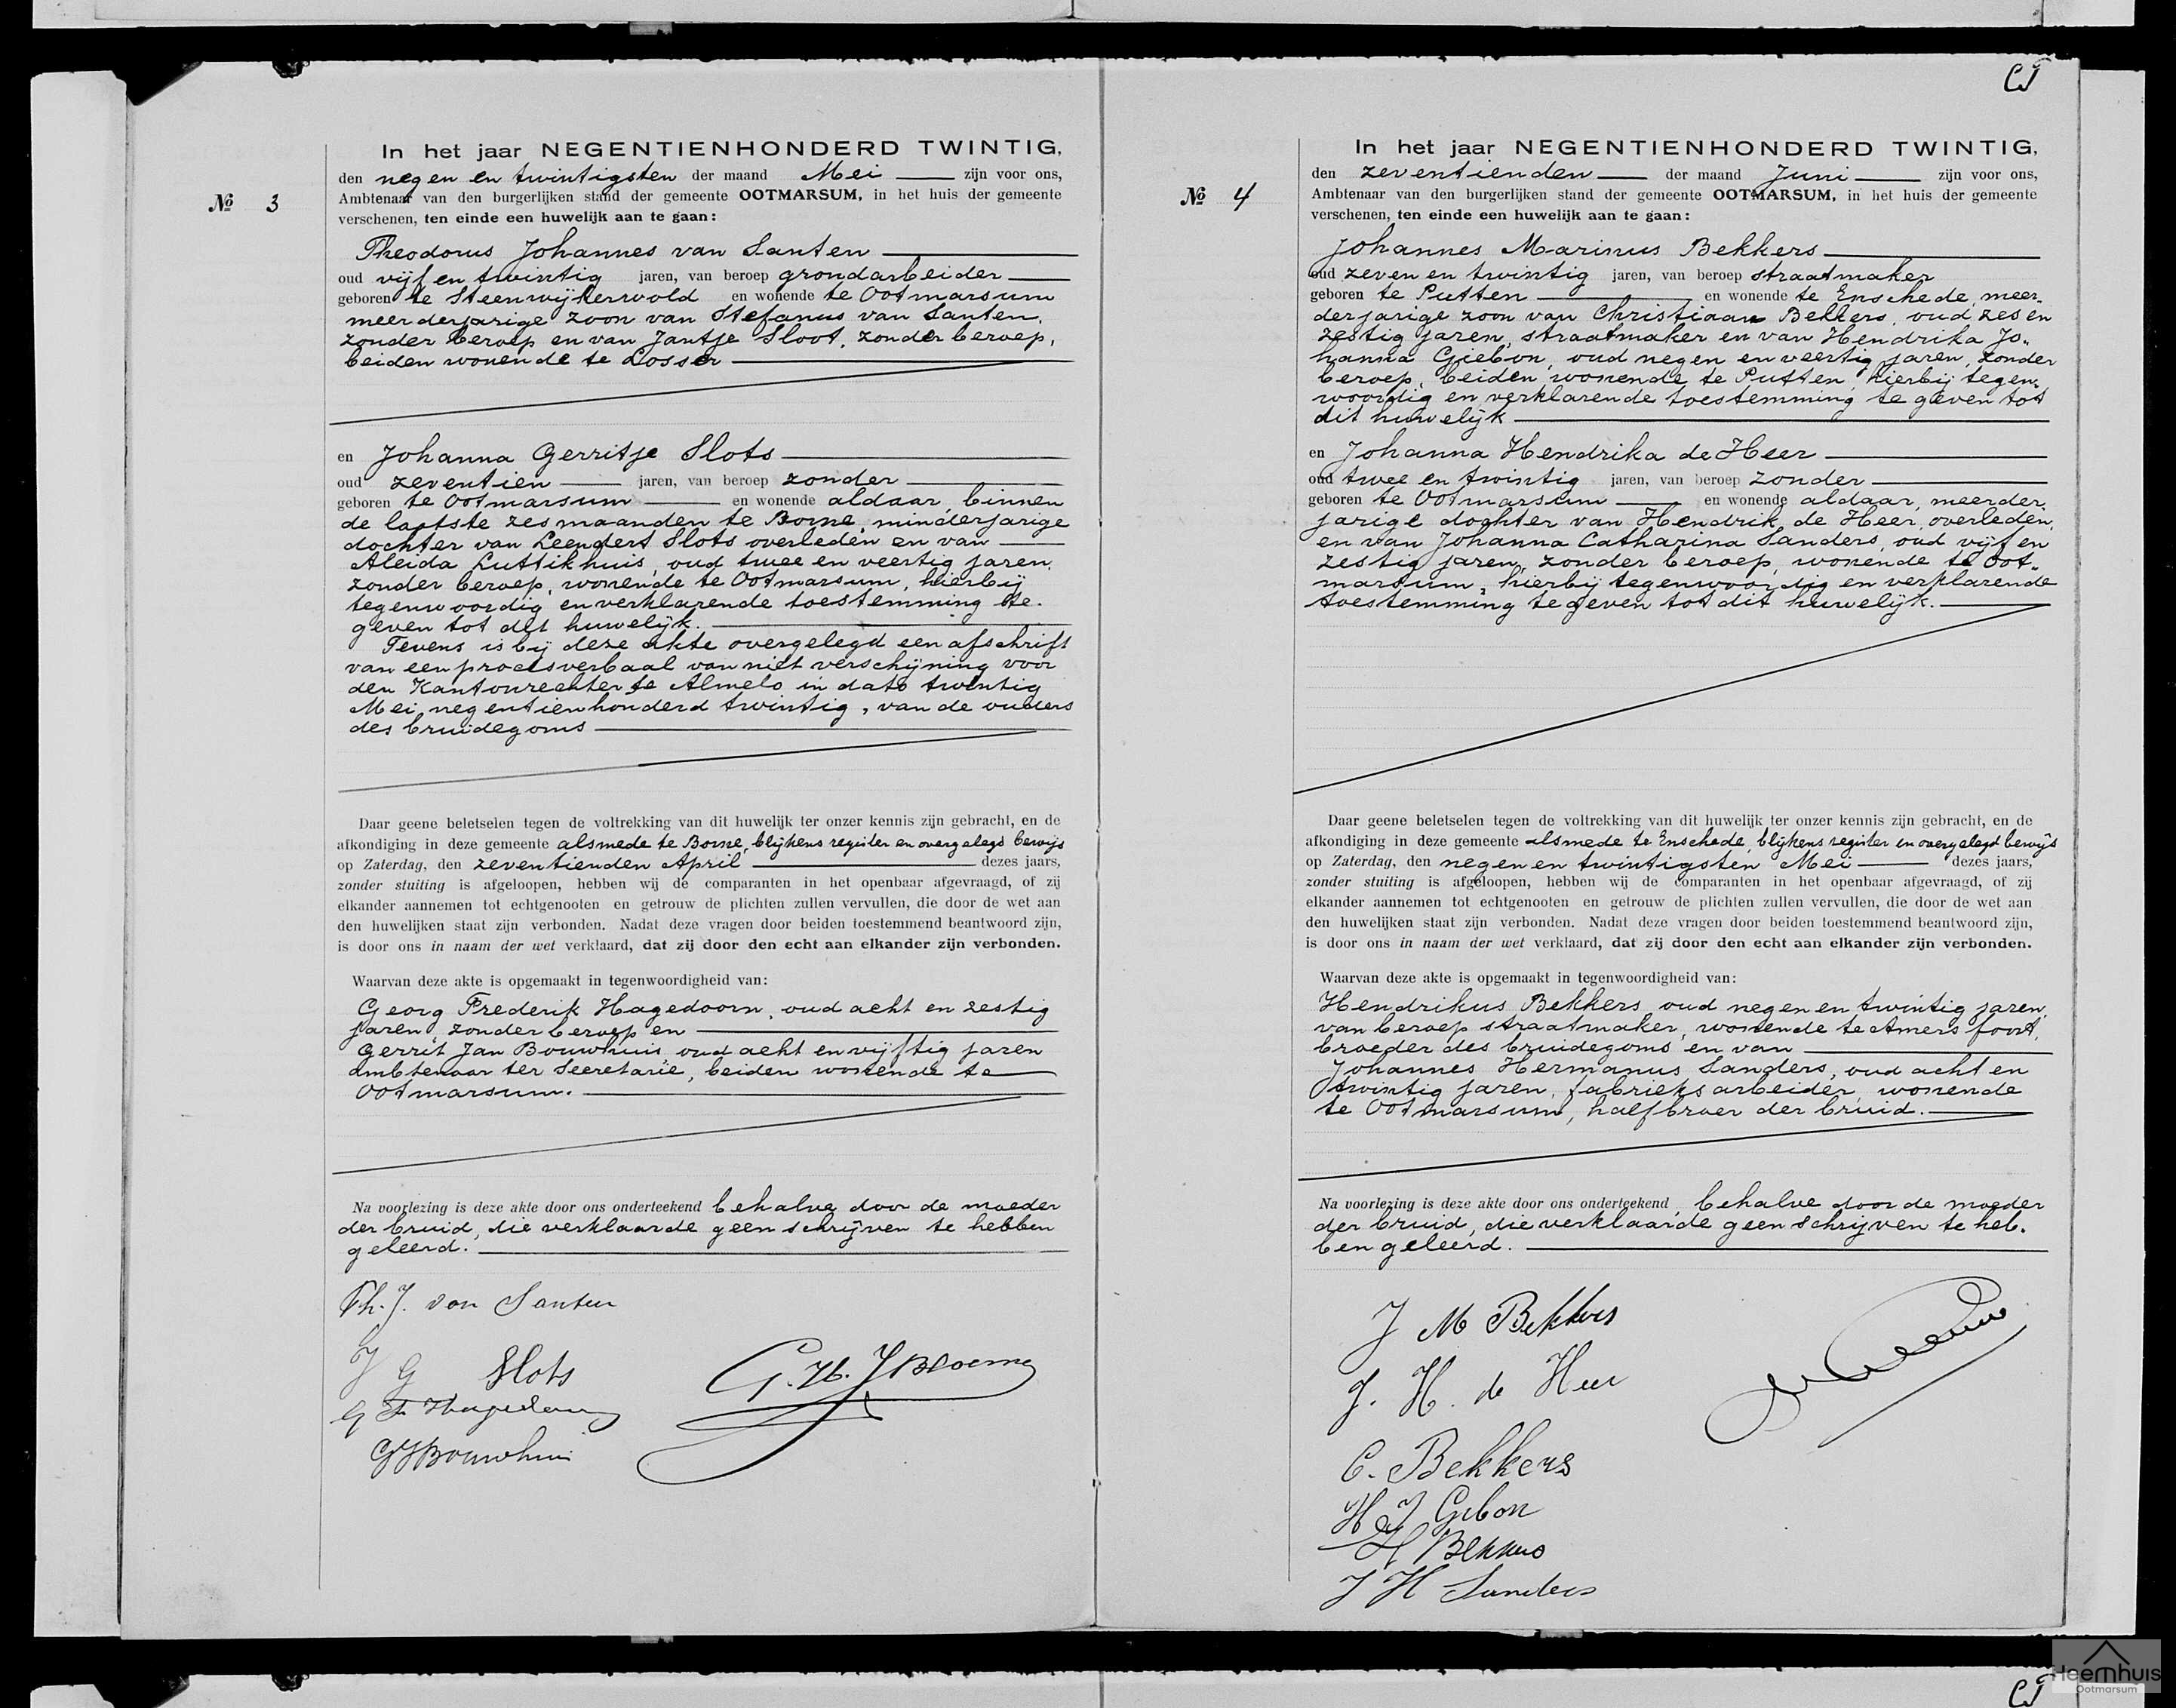 In het jaar NEGENTIENHONDERD TWINTIG,
den negen en twintigsten der maand Mei zijn voor ons,
Ambtenaar van den burgerlijken stand der gemeente OOTMARSUM, in het huis der gemeente
verschenen, ten einde een huwelijk aan te gaan:
No 3
Theodorus Johannes van Santen
oud vijf en twintig jaren, van beroep grondarbeider
geboren te Steenwijkerwold en wonende te Ootmarsum
meerderjarige zoon van Stefanus van Santen,
zonder beroep en van Jantje Sloot, zonder beroep,
beiden wonende te Losser
en Johanna Gerritje Slots
oud zeventien jaren, van beroep zonder
geboren te Ootmarsum en wonende aldaar, binnen
de laatste zes maanden te Borne, minderjarige
dochter van Leendert Slots overleden en van
Aleida Luttikhuis, oud twee en veertig jaren,
zonder beroep, wonende te Ootmarsum, hierbij
tegenwoordig en verklarende toestemming te
geven tot dit huwelijk.
Tevens is bij deze akte overgelegd een afschrift
van een procesverbaal van niet verschijning voor
den Kantonrechter te Almelo in dato twintig
Mei negentienhonderd twintig, van de ouders
des bruidegoms
Daar geene beletselen tegen de voltrekking van dit huwelijk ter onzer kennis zijn gebracht, en de
afkondiging in deze gemeente alsmede te Borne, blijkens register en overgelegd bewijs
op Zaterdag, den zeventienden April dezes jaars,
zonder stuiting is afgeloopen, hebben wij de comparanten in het openbaar afgevraagd, of zij
elkander aannemen tot echtgenooten en getrouw de plichten zullen vervullen, die door de wet aan
den huwelijken staat zijn verbonden. Nadat deze vragen door beiden toestemmend beantwoord zijn,
is door ons in naam der wet verklaard, dat zij door den echt aan elkander zijn verbonden.
Waarvan deze akte is opgemaakt in tegenwoordigheid van:
Georg Frederik Hagedoorn, oud acht en zestig
jaren, zonder beroep en
Gerrit Jan Bouwhuis, oud acht en vijftig jaren
ambtenaar ter Secretarie, beiden wonende te
Ootmarsum.
Na voorlezing is deze akte door ons onderteekend behalve door de moeder
der bruid, die verklaarde geen schrijven te hebben
geleerd.
Th. J. van Santen
J G Slots
G F Hagedoorn
GJBouwhuis
G. H. J Bloemen
CJ
In het jaar NEGENTIENHONDERD TWINTIG,
den zeventienden der maand Juni zijn voor ons,
Ambtenaar van den burgerlijken stand der gemeente OOTMARSUM, in het huis der gemeente
verschenen, ten einde een huwelijk aan te gaan:
No 4
Johannes Marinus Bekkers
oud zeven en twintig jaren, van beroep straatmaker
geboren te Putten en wonende te Enschede, meer-
derjarige zoon van Christiaan Bekkers, oud zes en
zestig jaren, straatmaker en van Hendrika Jo-
hanna Giebon, oud negen en veertig jaren, zonder
beroep, beiden wonende te Putten, hierbij tegen-
woordig en verklarende toestemming te geven tot
dit huwelijk
en Johanna Hendrika de Heer
oud twee en twintig jaren, van beroep zonder
geboren te Ootmarsum en wonende aldaar, meerder-
jarige dochter van Hendrik de Heer, overleden,
en van Johanna Catharina Sanders, oud vijf en
zestig jaren, zonder beroep, wonende te Oot-
marsum, hierbij tegenwoordig en verklarende
toestemming te geven tot dit huwelijk.
Daar geene beletselen tegen de voltrekking van dit huwelijk ter onzer kennis zijn gebracht, en de
afkondiging in deze gemeente alsmede te Enschede, blijkens register en overgelegd bewijs
op Zaterdag, den negen en twintigsten Mei dezes jaars,
zonder stuiting is afgeloopen, hebben wij de comparanten in het openbaar afgevraagd, of zij
elkander aannemen tot echtgenooten en getrouw de plichten zullen vervullen, die door de wet aan
den huwelijken staat zijn verbonden. Nadat deze vragen door beiden toestemmend beantwoord zijn,
is door ons in naam der wet verklaard, dat zij door den echt aan elkander zijn verbonden.
Waarvan deze akte is opgemaakt in tegenwoordigheid van:
Hendrikus Bekkers, oud negen en twintig jaren,
van beroep straatmaker, wonende te Amersfoort,
broeder des bruidegoms en van
Johannes Hermanus Sanders, oud acht en
twintig jaren, fabrieksarbeider, wonende
te Ootmarsum, halfbroer der bruid.
Na voorlezing is deze akte door ons onderteekend, behalve door de moeder
der bruid, die verklaarde geen schrijven te heb-
ben geleerd.
J M Bekkers
J. H. de Heer
C. Bekkers
H J Gibon
H Bekkers
J H Sanders
Heemhuis
Ootmarsum
CJ